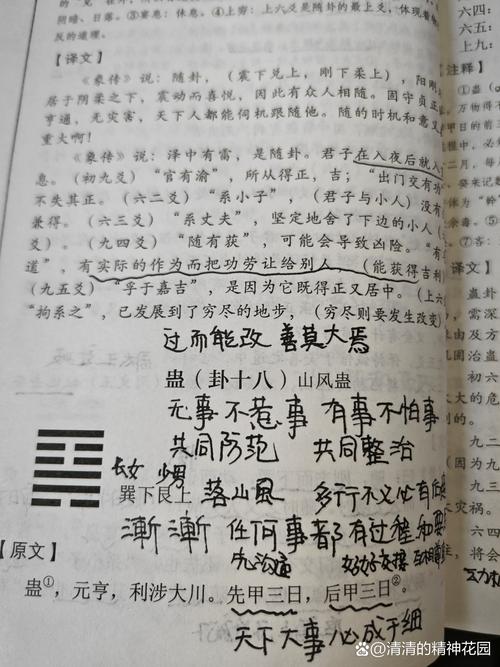 阴暗、日落。③宴息：休息。④上穷：上六爻是随卦的最上爻，体现着
反的道理。
【译文】
《彖传》说：随卦，（震下兑上，刚下柔上），阳刚
居于阴柔之下，震动而喜悦，因此有众人相随。固守贞正
亨通，无灾害，天下人都能伺机跟随他。随的时机和意义
重大啊！
《象传》说：泽中有雷，是随卦。君子在入夜后就入
息。（初九爻）“官有渝”，所以得正，吉；“出门交有功
不失其正。（六二爻）“系小子”，（君子与小人）没有
兼得。（六三爻）“系丈夫”，坚定地舍了下边的小人（
爻）。（九四爻）“随有获”，可能会导致凶险。“有
道”，有实际的作为而把功劳让给别人，（能获得吉利
（九五爻）“孚于嘉吉”，是因为它既得正又居中。（上六
“拘系之”，已发展到了穷尽的地步，（穷尽则要发生改变）
过而能改 善莫大焉
蛊（卦十八）山风蛊
无事不惹事 有事不怕事
共同防范 共同整治
长女 少男
巽下艮上 落山风 多行不义必有
渐渐 任何事都有过程和
先沟通 好好安排
【原文】
蛊①，元亨，利涉大川。先甲三日，后甲三日②。
天下大事 必成于细
六四：
六五：
上九：
【注释】
①蛊（
万物得有
甲日的前三
二月，每
要来记数
体为“幹
余毒。⑤
⑦容：
【译文】
蛊卦
，雷深
来由及方
巩固治蛊
（
大大的危
到的。
九二
（因为
九三
大灾祸。
六四
将会
头条@清清的精神花园